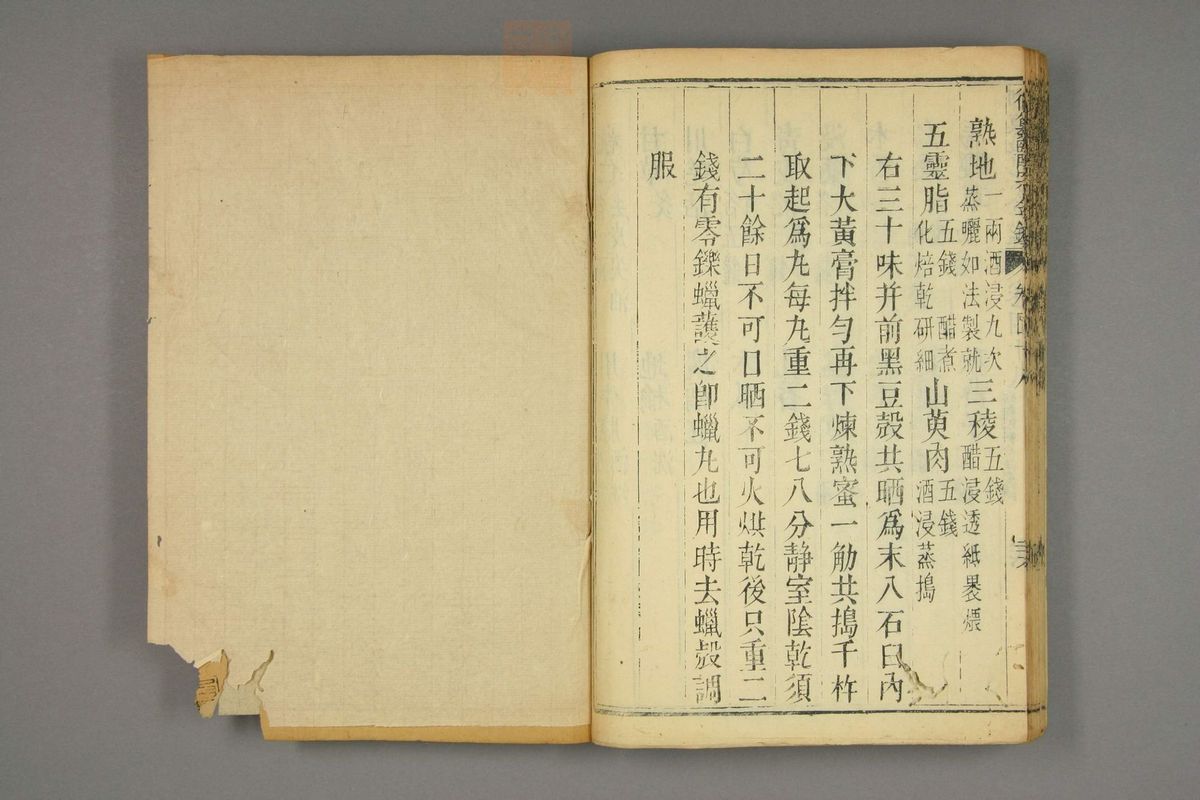 熟地一兩酒浸九次蒸曬如法製就三稜五錢醋浸透紙褁煨
五靈脂五錢醋煮化焙乾研細山萸肉五錢酒浸蒸搗
右三十味并前黑豆殼共晒爲末入石臼內
下大黃膏拌勻再下煉熟蜜一觔共搗千杵
取起爲丸每丸重二錢七八分靜室陰乾須
二十餘日不可日晒不可火烘乾後只重二
錢有零鑠蠟護之即蠟丸也用時去蠟殼調
服